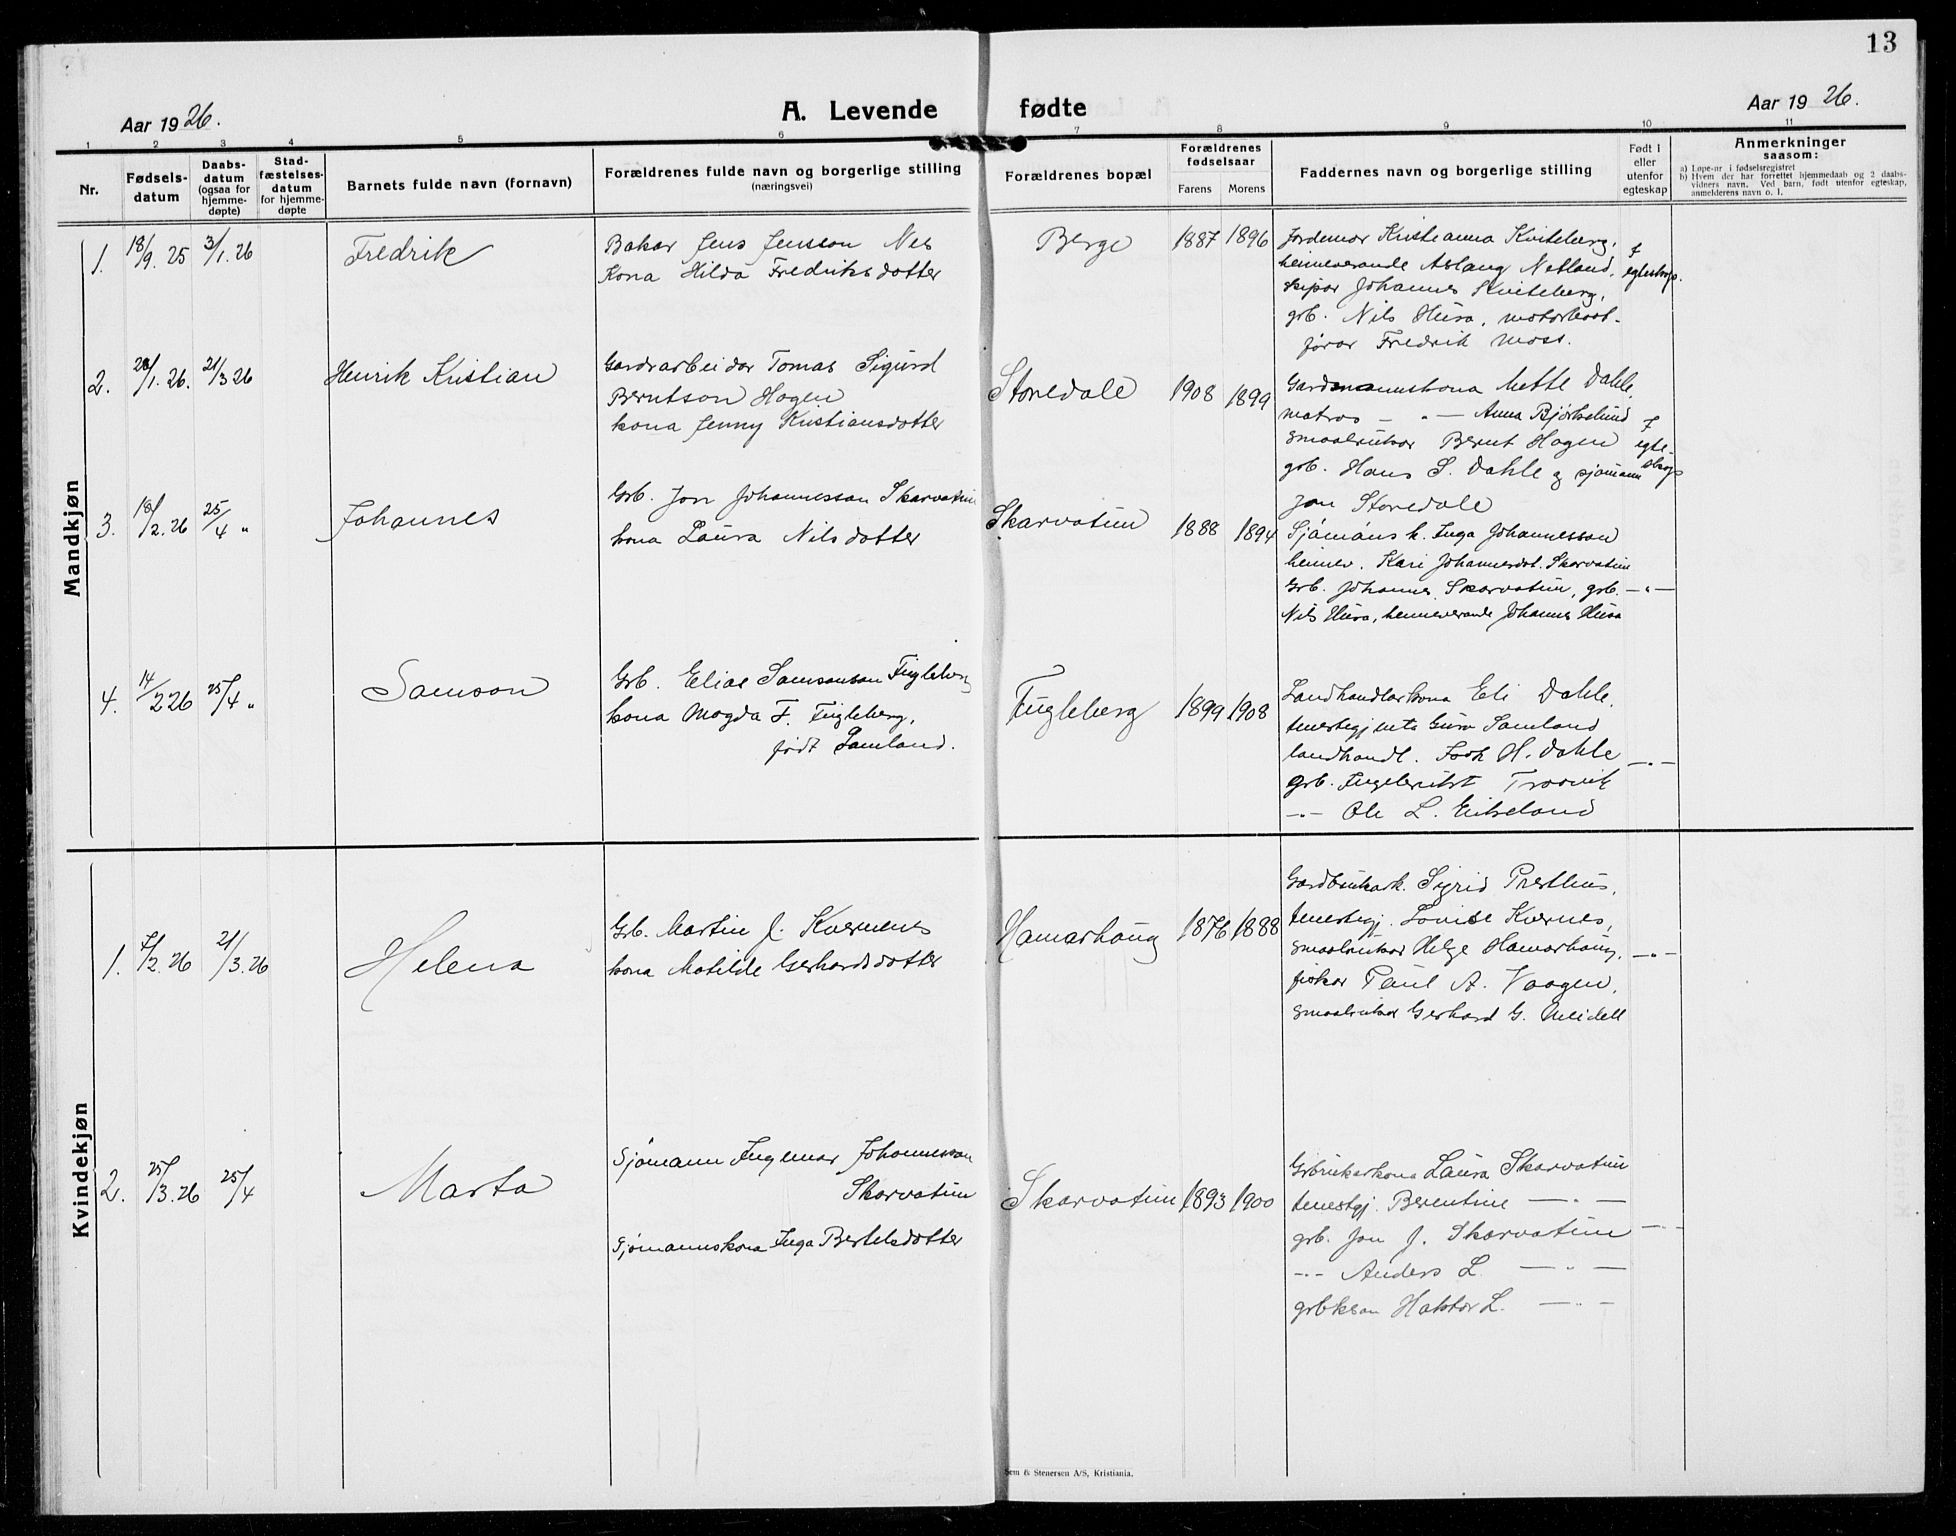 13
Aar 1926.
A. Levende fødte
Aar 1926.
1 2 3 4 5 6 7 8 9 10 11
Nr.
Fødsels-
datum
Daabs-
datum
(ogsaa for
hjemme-
døpte)
Stad-
fæstelses-
datum
for hjemme-
døpte
Barnets fulde navn (fornavn)
Forældrenes fulde navn og borgerlige stilling
(næringsvei)
Forældrenes bopæl
Forældrenes
fødselsaar
Farens Morens
Faddernes navn og borgerlige stilling
Født i
eller
utenfor
egteskap
Anmerkninger
saasom:
a) Løpe-nr i fødselsregistret
b) Hvem der har forrettet hjemmedaab og 2 daabs-
vidners navn. Ved barn, født utenfor egteskap,
anmelderens navn o. l.
Mandkjøn
1. 18/9. 25 3/1. 26 Fredrik
Bakar Jens Jensson Nes
Kona Hilda Fredriksdotter
Berge 1887 1896
Jordemor Kristianna Kviteberg,
heimeverande Aslaug Netland,
skipar Johannes Kviteberg,
grb. Nils Husa, motorbaat-
førar Fredrik Moss.
f
egteskap.
2. 28/1. 26. 21/3 26 Henrik Kristian
Gardsarbeidar Tomas Sigurd
Berntson Hagen
kona Jenny Kristiansdotter
Storedale 1908 1899
Gardmannskona Mette Dahle,
matros — " — Anna Bjørkelund
smaabrukar Bernt Hagen
grb. Hans S. Dahle og sjømann
Jon Storedale
f
egte-
skap
3. 18/2. 26 25/4 " Johannes
Grb. Jon Johannesson Skarvatun
kona Laura Nilsdotter
Skarvatun 1888 1894
Sjømans k. Inga Johannesson
heimev. Kari Johannesdot. Skarvatun
Grb. Johannes Skarvatun, grb. — " —
Nils Husa, heimeverande Johannes Husa
4. 14/2 26 25/4 " Samson
Grb. Elias Samsonson Fugleberg
kona Magda F. Fugleberg,
født Samland.
Fugleberg 1899 1908
Landhandlarkona Eli Dahle,
tenestegjenta Guro Samland
landhandl. H. Dahle — " —
grb. Ingebrikt Traavik
— " — Ole L. Eikeland
Kvindekjøn
1. 7/2. 26 21/3. 26 Helena
Grb. Martin J. Kvernenes
kona Matilde Gerhardsdotter
Hamarhaug 1876 1888
Gardbrukark. Sigrid Presthus,
tenestegj. Lovise Kvernes,
smaabrukar Helge Hamarhaug, — " —
fiskar Paul A. Vaagen,
smaabrukar Gerhard G. Meidell
2. 25/3. 26 25/4 Marta
Sjømann Ingemar Johannesson
Skarvatun
Sjømannskona Inga Bertelsdotter
Skarvatun 1893 1900
Grbrukarkona Laura Skarvatun
tenestgj. Berentine — " —
grb. Jon J. Skarvatun — " —
— " — Anders L. — " —
grbkson Haktor L. — " —
Sem & Stenersen A/S, Kristiania.